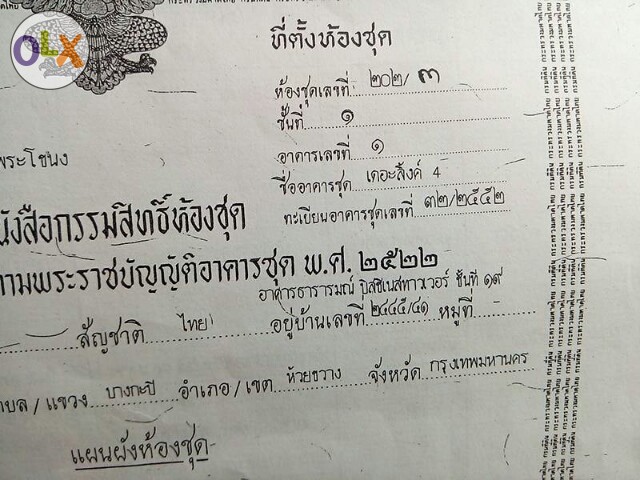 OLX
ที่ตั้งห้องชุด
ห้องชุดเลขที่ ๒๐๒/๓
ชั้นที่ ๑
อาคารเลขที่ ๑
พระโขนง
ชื่ออาคารชุด เดอะลิงค์ 4
ทะเบียนอาคารชุดเลขที่ ๓๒/๒๕๕๒
นังสือกรรมสิทธิ์ห้องชุด
ตามพระราชบัญญัติอาคารชุด พ.ศ. ๒๕๒๒
อาคารธารารมณ์ บิสซิเนสทาวเวอร์ ชั้นที่ ๑๙
สัญชาติ ไทย อยู่บ้านเลขที่ ๒๔๔๕/๔๑ หมู่ที่ -
บล/แขวง บางกะปิ อำเภอ/เขต ห้วยขวาง จังหวัด กรุงเทพมหานคร
แผนผังห้องชุด